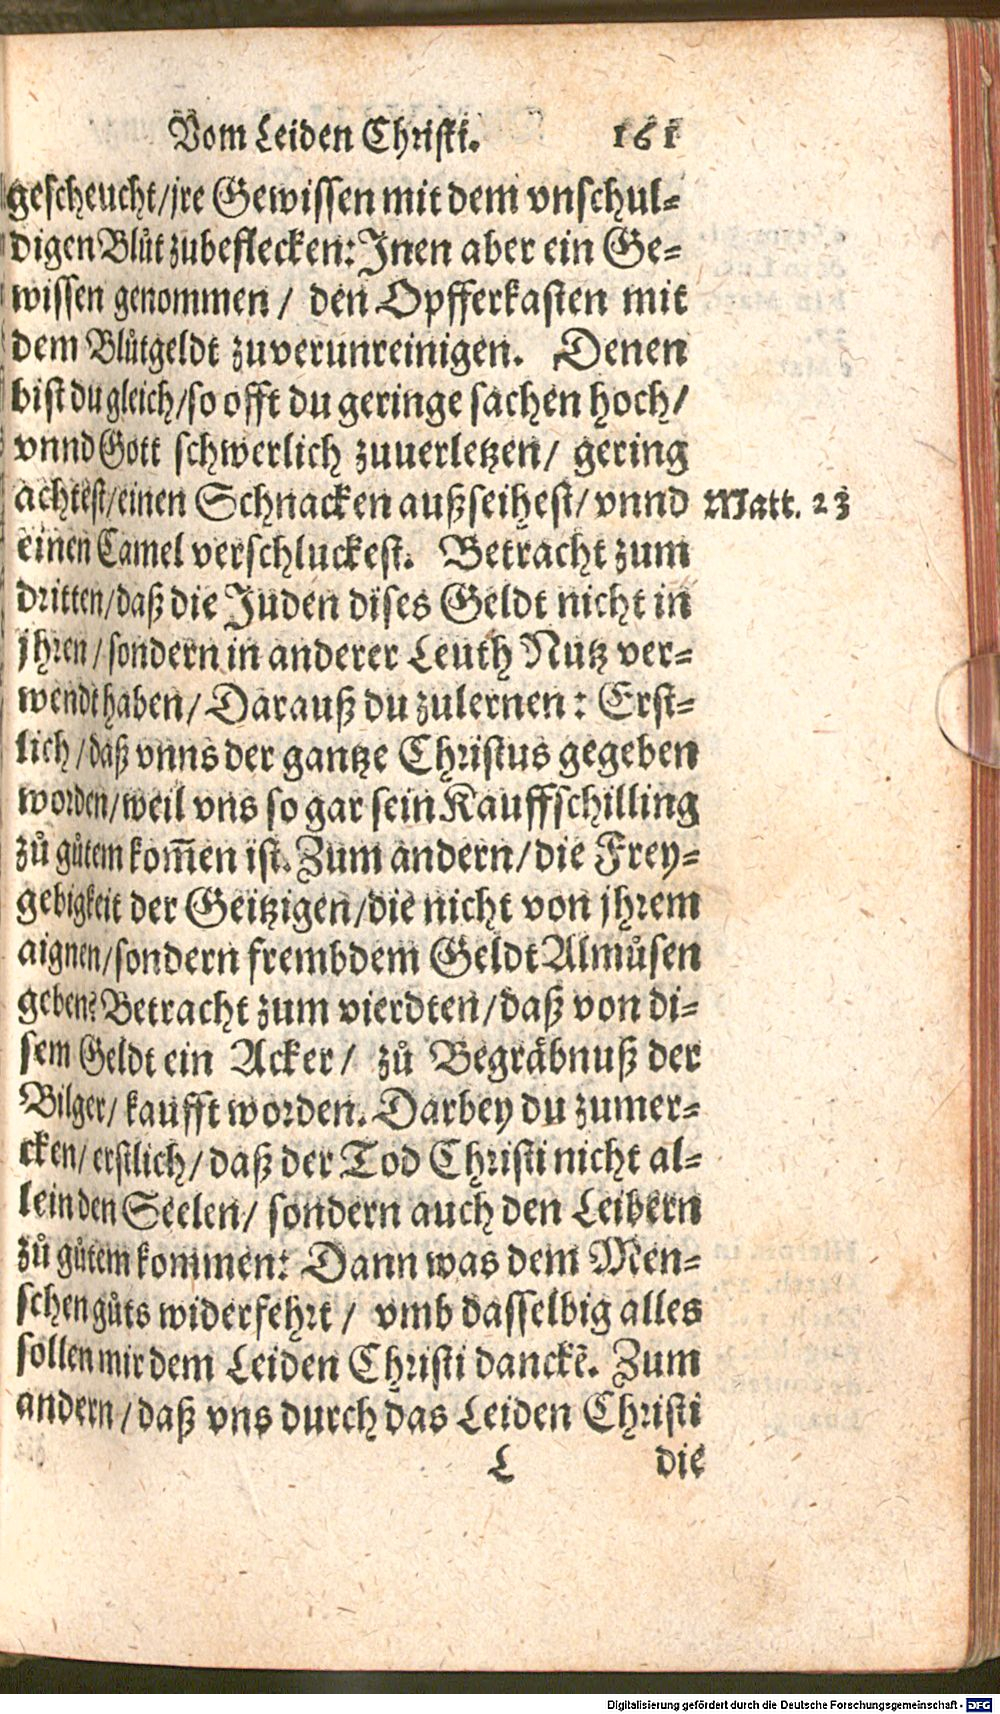 Vom Leiden Christi. 161
gescheucht/jre Gewissen mit dem vnschul-
digen Blůt zubeflecken: Inen aber ein Ge-
wissen genommen / den Opfferkasten mit
dem Blůtgeldt zuverunreinigen. Denen
bist du gleich/so offt du geringe sachen hoch/
vnnd Gott schwerlich zuuerletzen/ gering
achtest/einen Schnacken außseihest/ vnnd Matt. 23
einen Camel verschluckest. Betracht zum
dritten/daß die Juden dises Geldt nicht in
jhren/sondern in anderer Leuth Nutz ver-
wendt haben/ Darauß du zulernen: Erst-
lich/daß vnns der gantze Christus gegeben
worden/weil vns so gar sein Kauffschilling
zů gůtem kom̃en ist. Zum andern/die Frey-
gebigkeit der Geitzigen/die nicht von jhrem
aignen/sondern frembdem Geldt Almůsen
geben? Betracht zum vierdten/daß von di-
sem Geldt ein Acker/ zů Begräbnuß der
Bilger/ kaufft worden. Darbey du zumer-
cken/ erstlich/daß der Tod Christi nicht al-
lein den Seelen/ sondern auch den Leibern
zů gůtem kommen: Dann was dem Men-
schen gůts widerfehrt / vmb dasselbig alles
sollen mir dem Leiden Christi danckẽ. Zum
andern/daß vns durch das Leiden Christi
L die
Digitalisierung gefördert durch die Deutsche Forschungsgemeinschaft - DFG